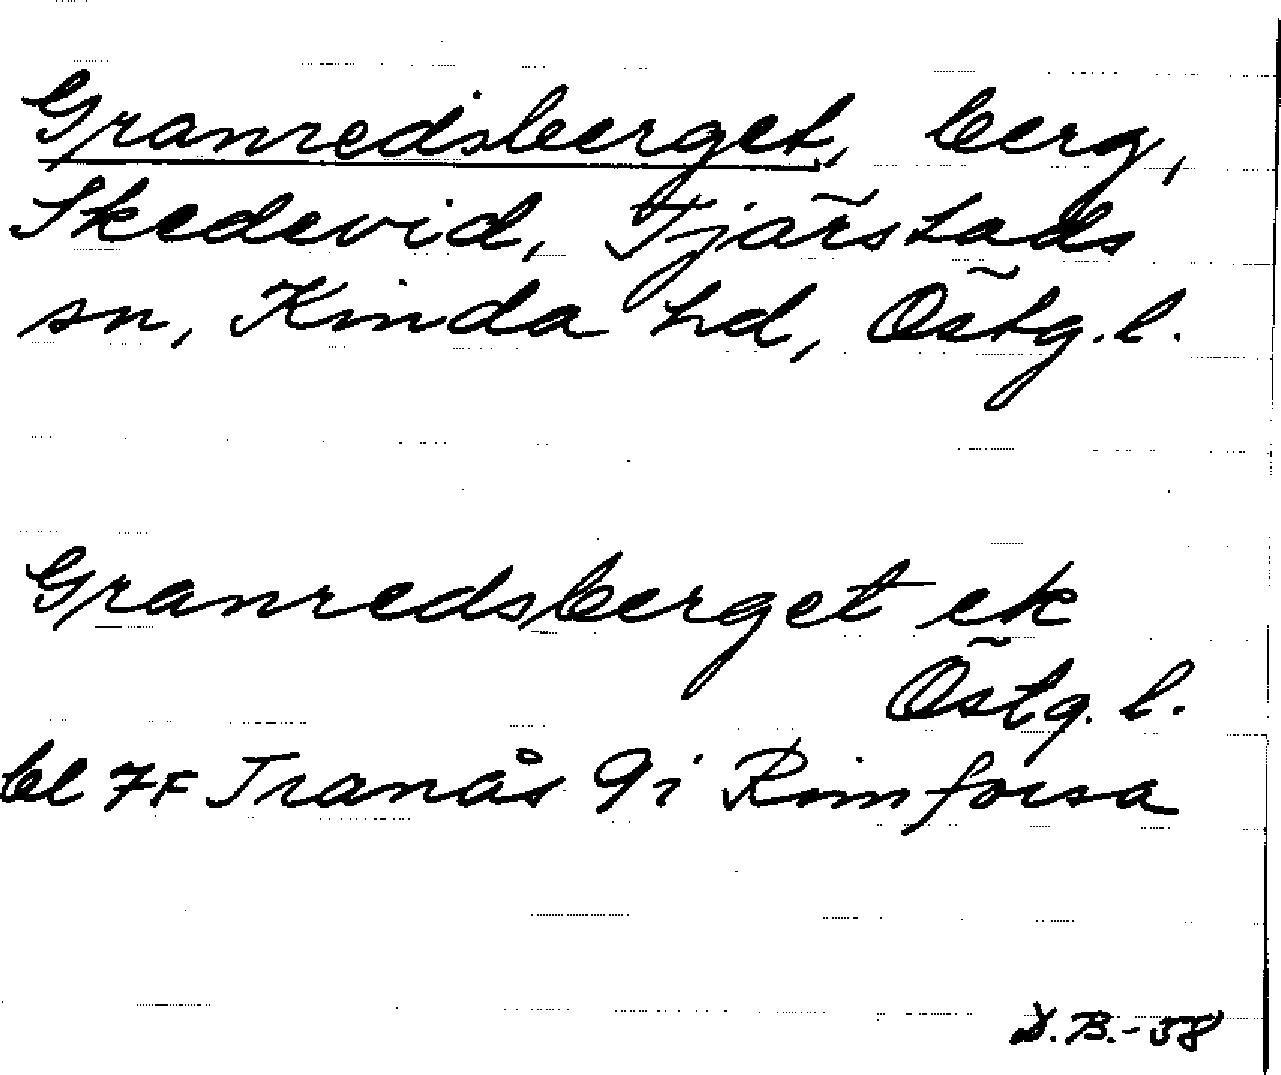 Granredsberget, berg,
Skedevid, Tjärstads
sn, Kinda hd, Östg. l.
Granredsberget ek
Östg. l.
bl 7F Tranås 9i Rimforsa
D.B.-58